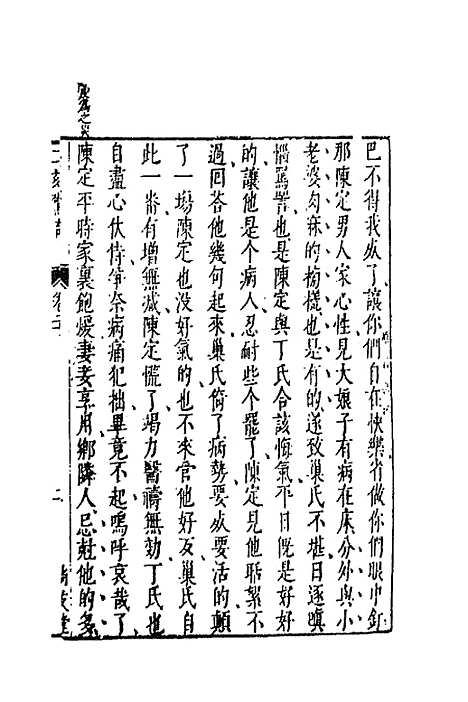 巴不得我死了讓你們自在快樂省做你們眼中釘
那陳定男人家心性見大娘子有病在床分外與小
老婆肉麻的榜樣也是有的遂致巢氏不堪日逐嗔
惱罵詈也是陳定與丁氏合該悔氣平日既是好好
的讓他是个病人忍耐些个罷了陳定見他聒絮不
過回答他幾句起來巢氏倚了病勢要死要活的顛
了一塲陳定也没好氣的也不來管他好歹巢氏自
此一番有增無减陳定慌了竭力醫禱無効丁氏也
自盡心伏侍爭奈病痛犯拙畢竟不起嗚呼哀哉了
陳定平時家裏飽煖妻妾享用鄉隣人忌尅他的多
二刻驚奇
卷二十
二
尚友堂